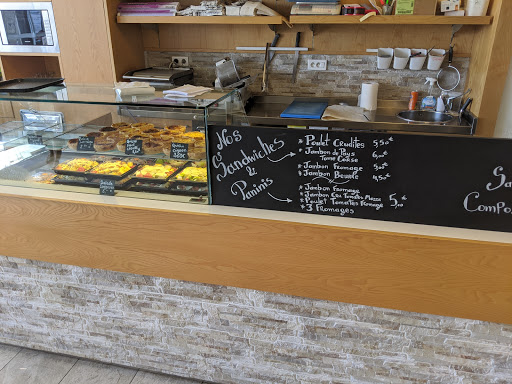 Nos
Sandwiches
& Paninis
* Poulet Crudités 5,50€
* Jambon de Pays 6,00€
Tome Corse
* Jambon Fromage 5,00€
* Jambon Beurre 4,50€
* Jambon Fromage
* Jambon Cru Tomates Mozza
* Poulet Tomates Fromage 5,00€
* 3 Fromages
Sa
Compos